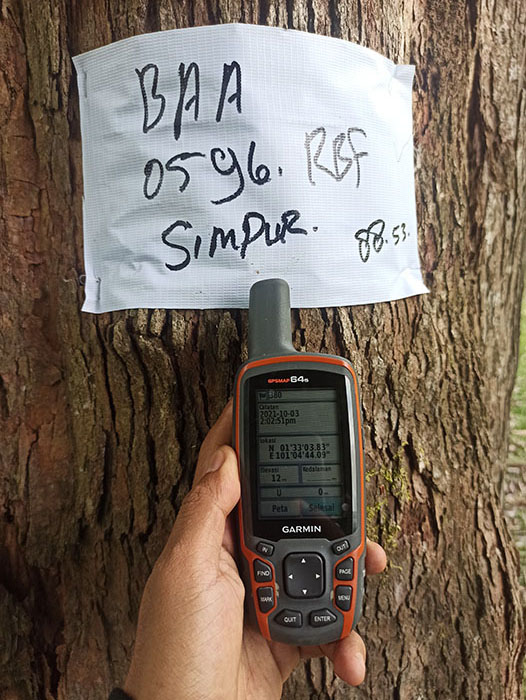 BAA
0596. RBF
SIMPUR. 88.53.
GPSMAP 64s
180
Catatan
2021-10-03
2:02:51pm
Lokasi
N 01°33'03.83"
E 101°04'44.09"
Elevasi Kedalaman
12 m
U 0 m
Peta Selesai
GARMIN
IN OUT
FIND PAGE
MARK MENU
QUIT ENTER